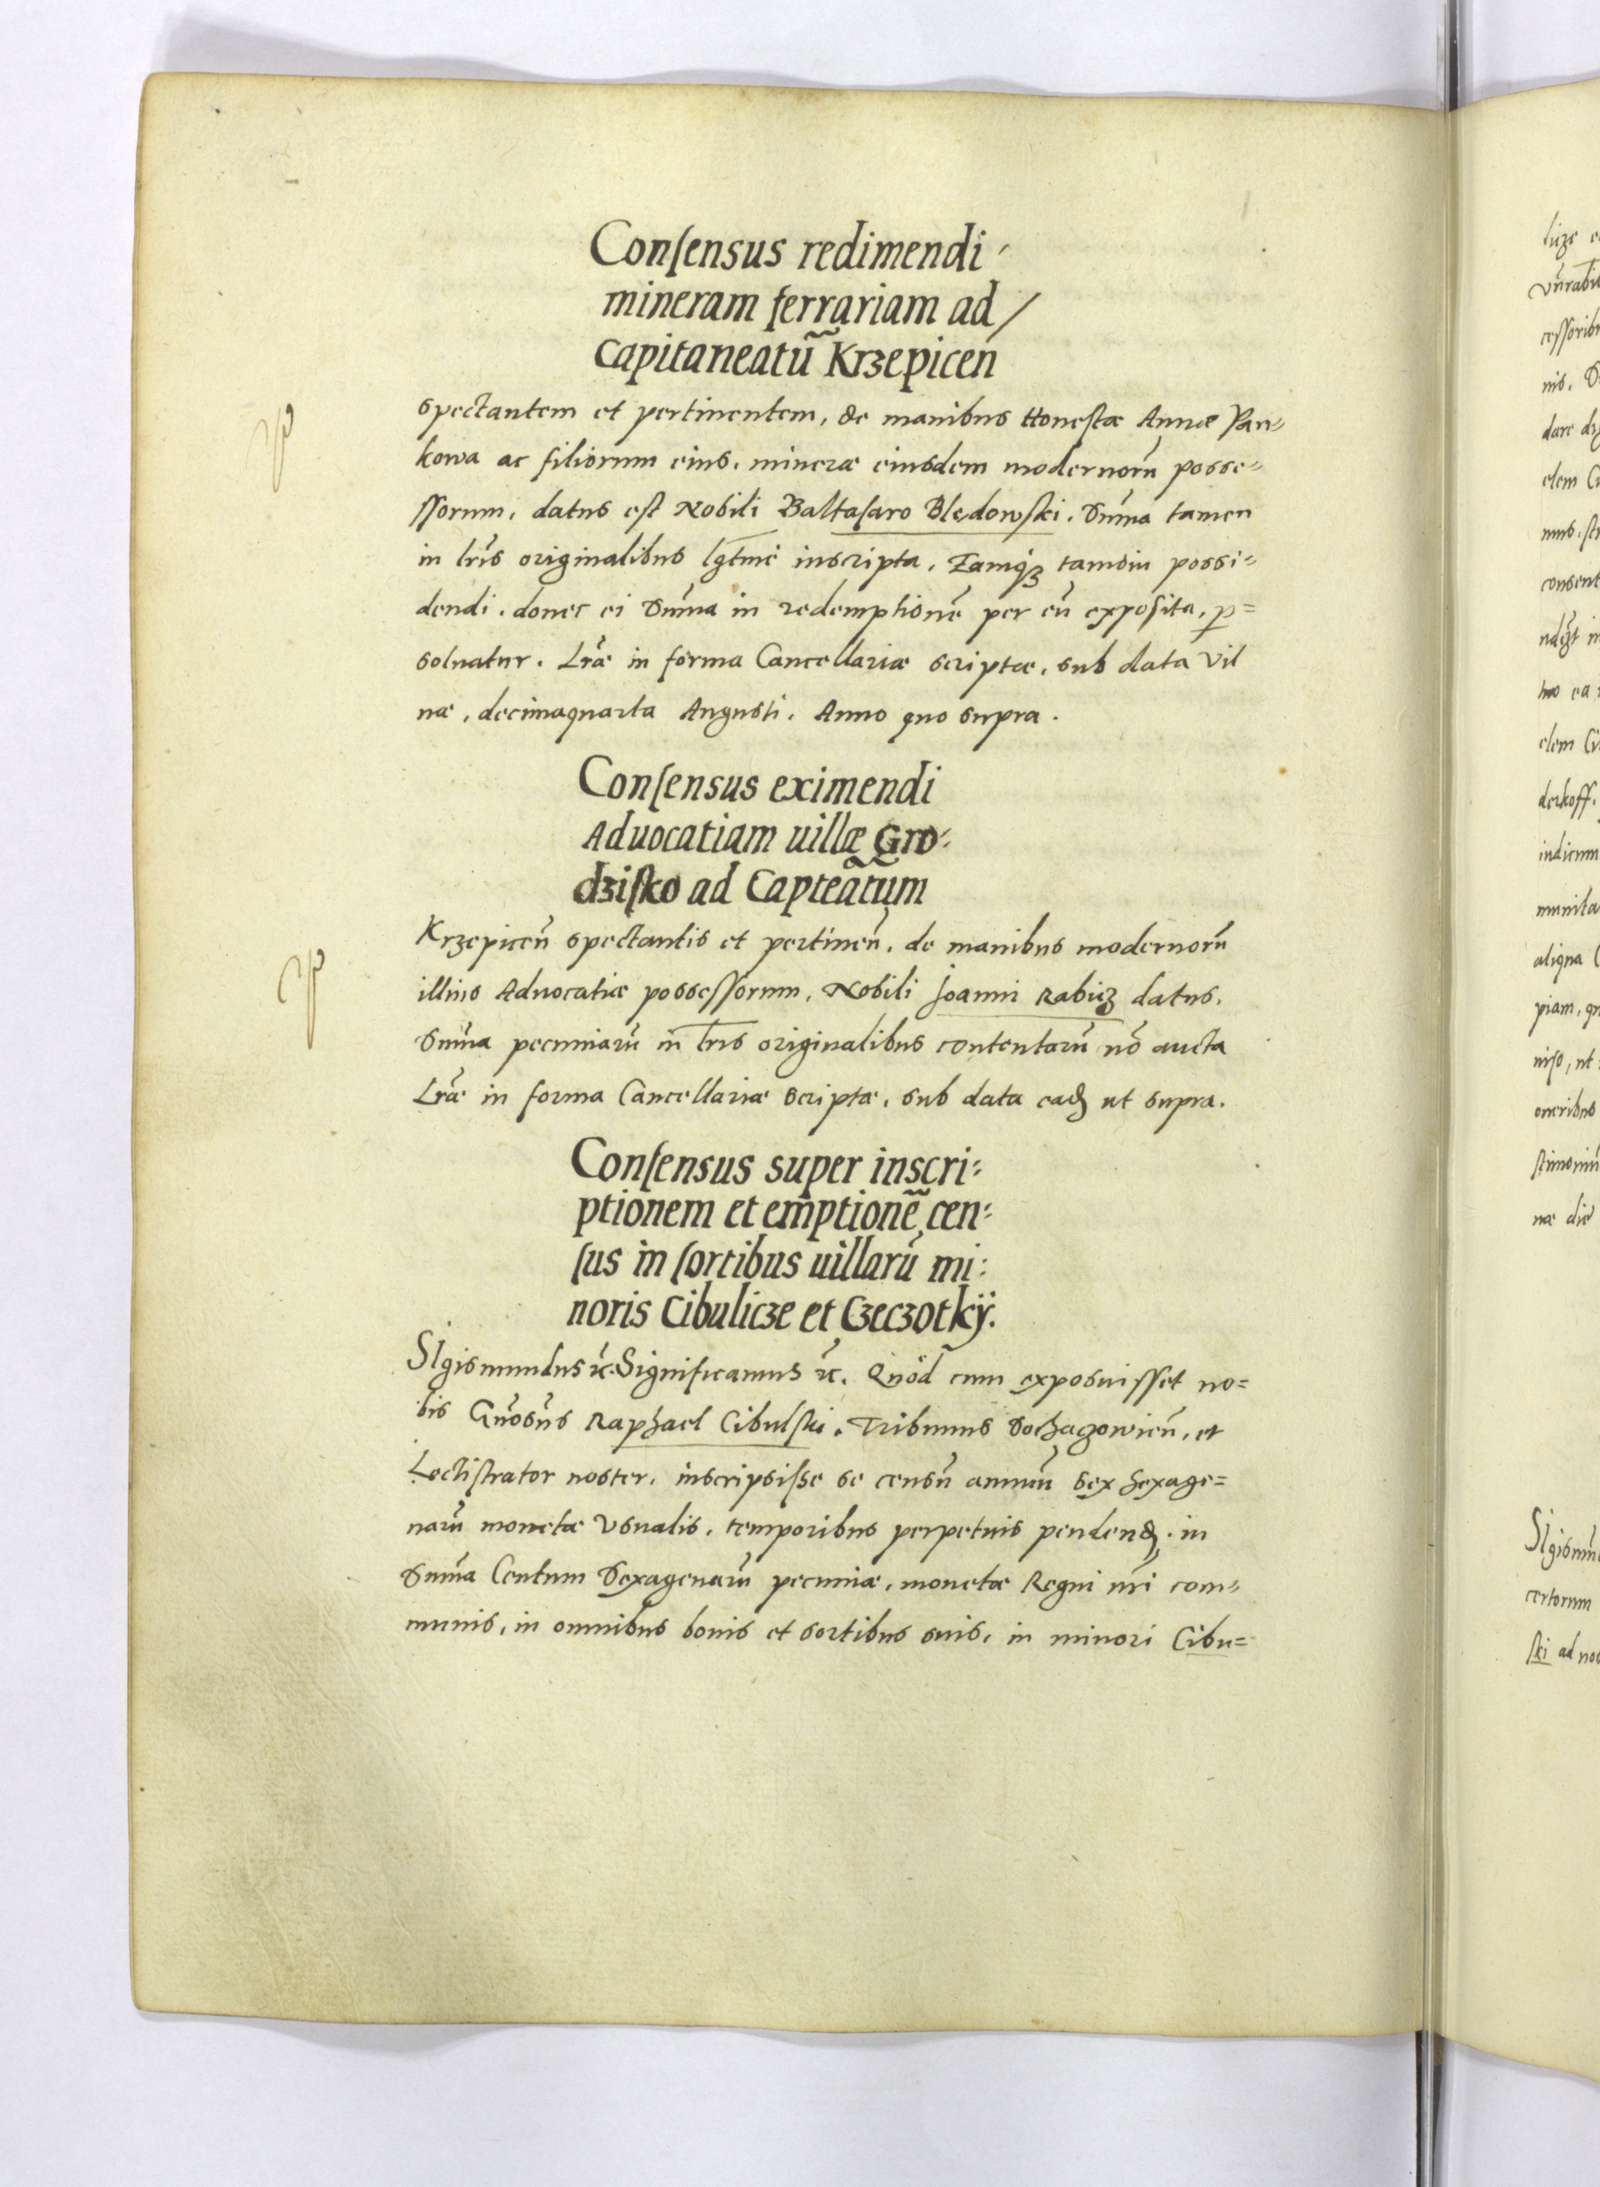 Consensus redimendi
mineram ferrariam ad
Capitaneatū Krzepiceñ
spectantem et pertinentem, de manibus Honestæ Annæ Pan=
kowa ac filiorum eius, mineræ eiusdem modernorū posse=
ssorum, datus est Nobili Baltasaro Bledowski. Sūma tamen
in lr̃is originalibus lgtme inscripta. Eamq3 tamdiu possi=
dendi, donec ei Sūma in redemptionē per eū exposita, p=
soluatur. Lr̃æ in forma Cancellariæ scriptæ, sub data Vil
næ, decimaquarta Augusti. Anno quo supra.
Consensus eximendi
Advocatiam uillæ Gro=
dzisko ad Capteãtum
Krzepiceñ spectantis et pertineñ, de manibus modernorū
illius Advocatiæ possessorum, Nobili Joanni Rabicz datus.
Sūma pecuniarū in lr̃is originalibus contentarū nō aucta
Lr̃æ in forma Cancellariæ scriptæ, sub data eadȝ ut supra.
Consensus super inscri=
ptionem et emptionē cen=
sus in sortibus uillarū mi=
noris Cibulicze et Czeczotkÿ.
SIgismundus rc̃. Significamus rc̃. Quòd cum exposuisset no=
bis Gñosus Raphael Cibulski. Tribunus Sochaczowieñ, et
Lectistrator noster, inscripsisse se censū annuū sex sexage=
narū monetæ Vsualis, temporibus perpetuis pendenȝ, in
Sūma Centum Sexagenarū pecuniæ, monetæ Regni nr̃i com=
munis, in omnibus bonis et sortibus suis, in minori Cibu=
SIgismun
certorum
ski ad nos